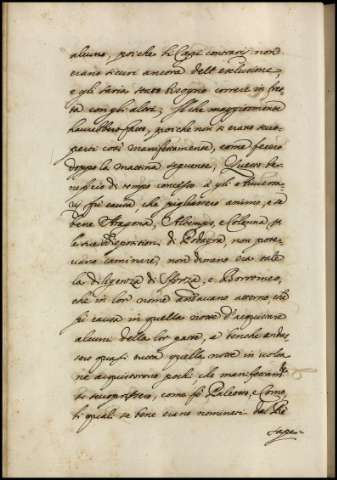 alcuno, poiche li Capi contrarij non
erano sicuri ancora dell'esclusione,
e gli saria stato bisogno correre in fret
ta con gli altri, Il che maggiormente
haverebbero fatto, poiche non si erano scoe
perti così manifestamente, come fecero
doppo la mattina seguente, Questo be=
neficio di tempo concesso à gli Aversa
rij fù causa, che pigliassero animo, e se
bene Aragona, Altemps, e Colonna p
la sua di Podagra, non pote=
vano caminare, nondimeno era tale
la diligenza di Sforza, e Borromeo,
che in lor nome andavano attorno, che
fù causa in quella notte d'acquistare
alcuni della lor parte, e benche andas
sero quasi tutta quella notte in volta
ne acquistorno pochi, che manifestamte
si scoprissero, come fù Paleotto, e Como,
li quali se bene erano nominati dal Rè